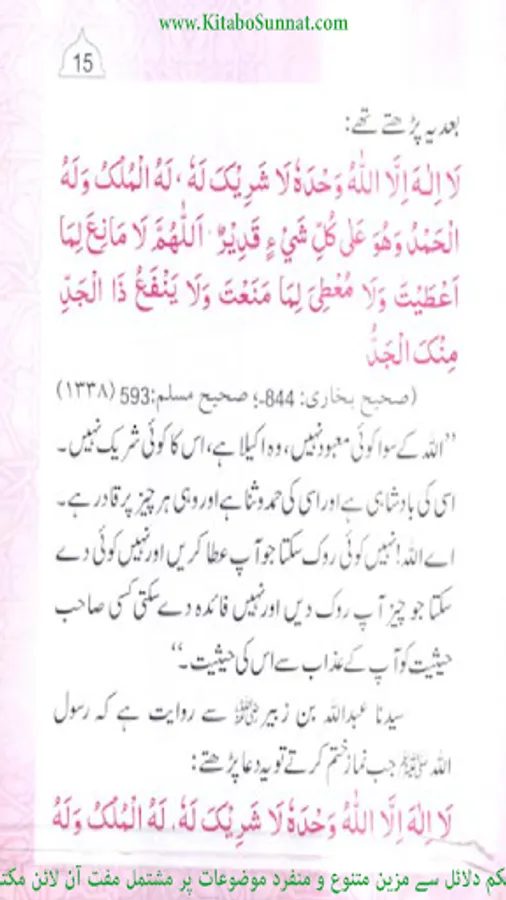 www.KitaboSunnat.com
15
بعد یہ پڑھتے تھے:
لَا اِلٰهَ اِلَّا اللّٰهُ وَحْدَهٗ لَا شَرِيْكَ لَهٗ ، لَهُ الْمُلْكُ وَلَهُ
الْحَمْدُ وَهُوَ عَلٰى كُلِّ شَيْءٍ قَدِيْرٌ ، اَللّٰهُمَّ لَا مَانِعَ لِمَا
اَعْطَيْتَ وَلَا مُعْطِيَ لِمَا مَنَعْتَ وَلَا يَنْفَعُ ذَا الْجَدِّ
مِنْكَ الْجَدُّ
(صحیح بخاری: 844۔؛ صحیح مسلم: 593 (١٣٣٨)
”اللہ کے سوا کوئی معبود نہیں، وہ اکیلا ہے، اس کا کوئی شریک نہیں۔
اسی کی بادشاہی ہے اور اسی کی حمد و ثنا ہے اور وہی ہر چیز پر قادر ہے۔
اے اللہ! نہیں کوئی روک سکتا جو آپ عطا کریں اور نہیں کوئی دے
سکتا جو چیز آپ روک دیں اور نہیں فائدہ دے سکتی کسی صاحب
حیثیت کو آپ کے عذاب سے اس کی حیثیت۔“
سیدنا عبداللہ بن زبیر رضی اللہ عنہ سے روایت ہے کہ رسول
اللہ ﷺ جب نماز ختم کرتے تو یہ دعا پڑھتے:
لَا اِلٰهَ اِلَّا اللّٰهُ وَحْدَهٗ لَا شَرِيْكَ لَهٗ، لَهُ الْمُلْكُ وَلَهُ
دلائل سے مزین متنوع و منفرد موضوعات پر مشتمل مفت آن لائن